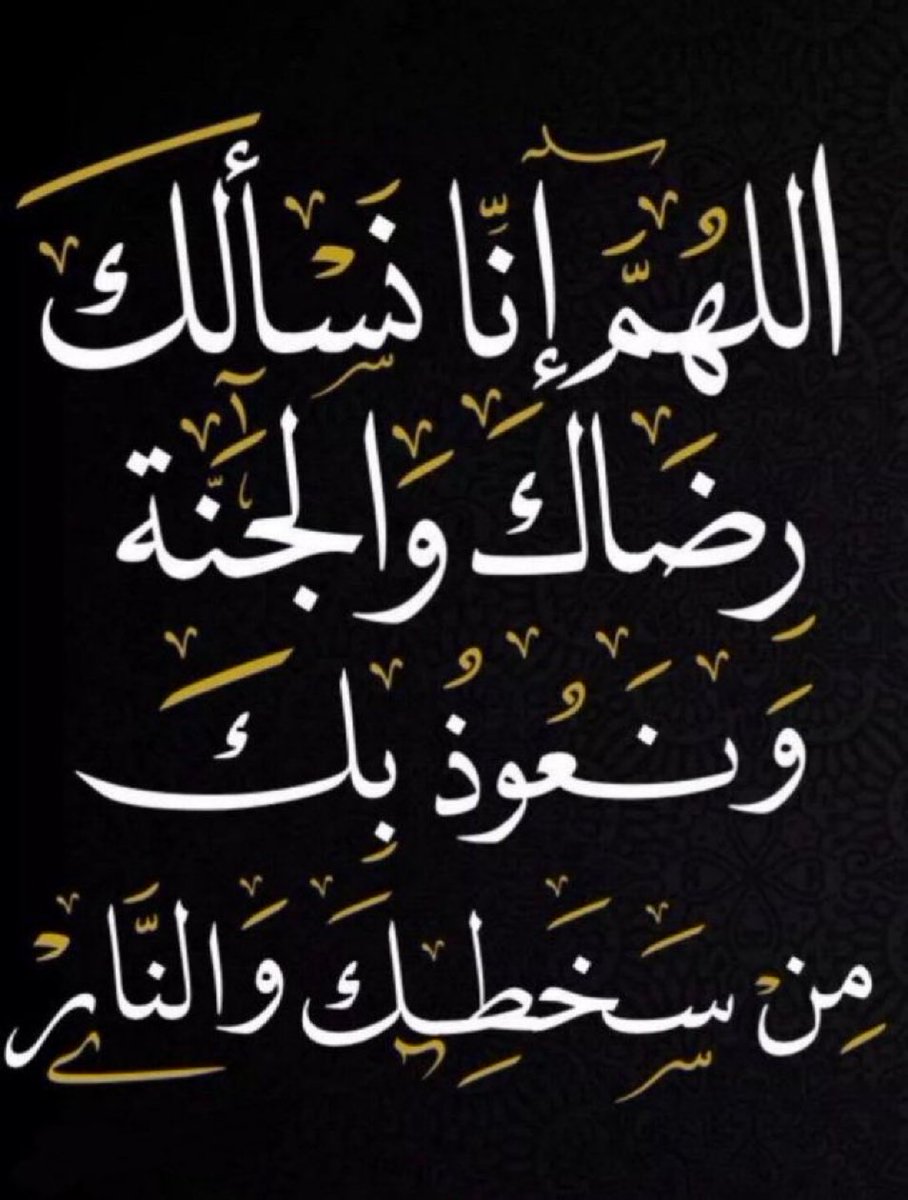 اللهُمَّ إنَّا نَسْألك
رِضَاكَ وَالجَنَّة
وَنَعُوذُ بِكَ
مِنْ سَخَطِكَ وَالنَّارْ